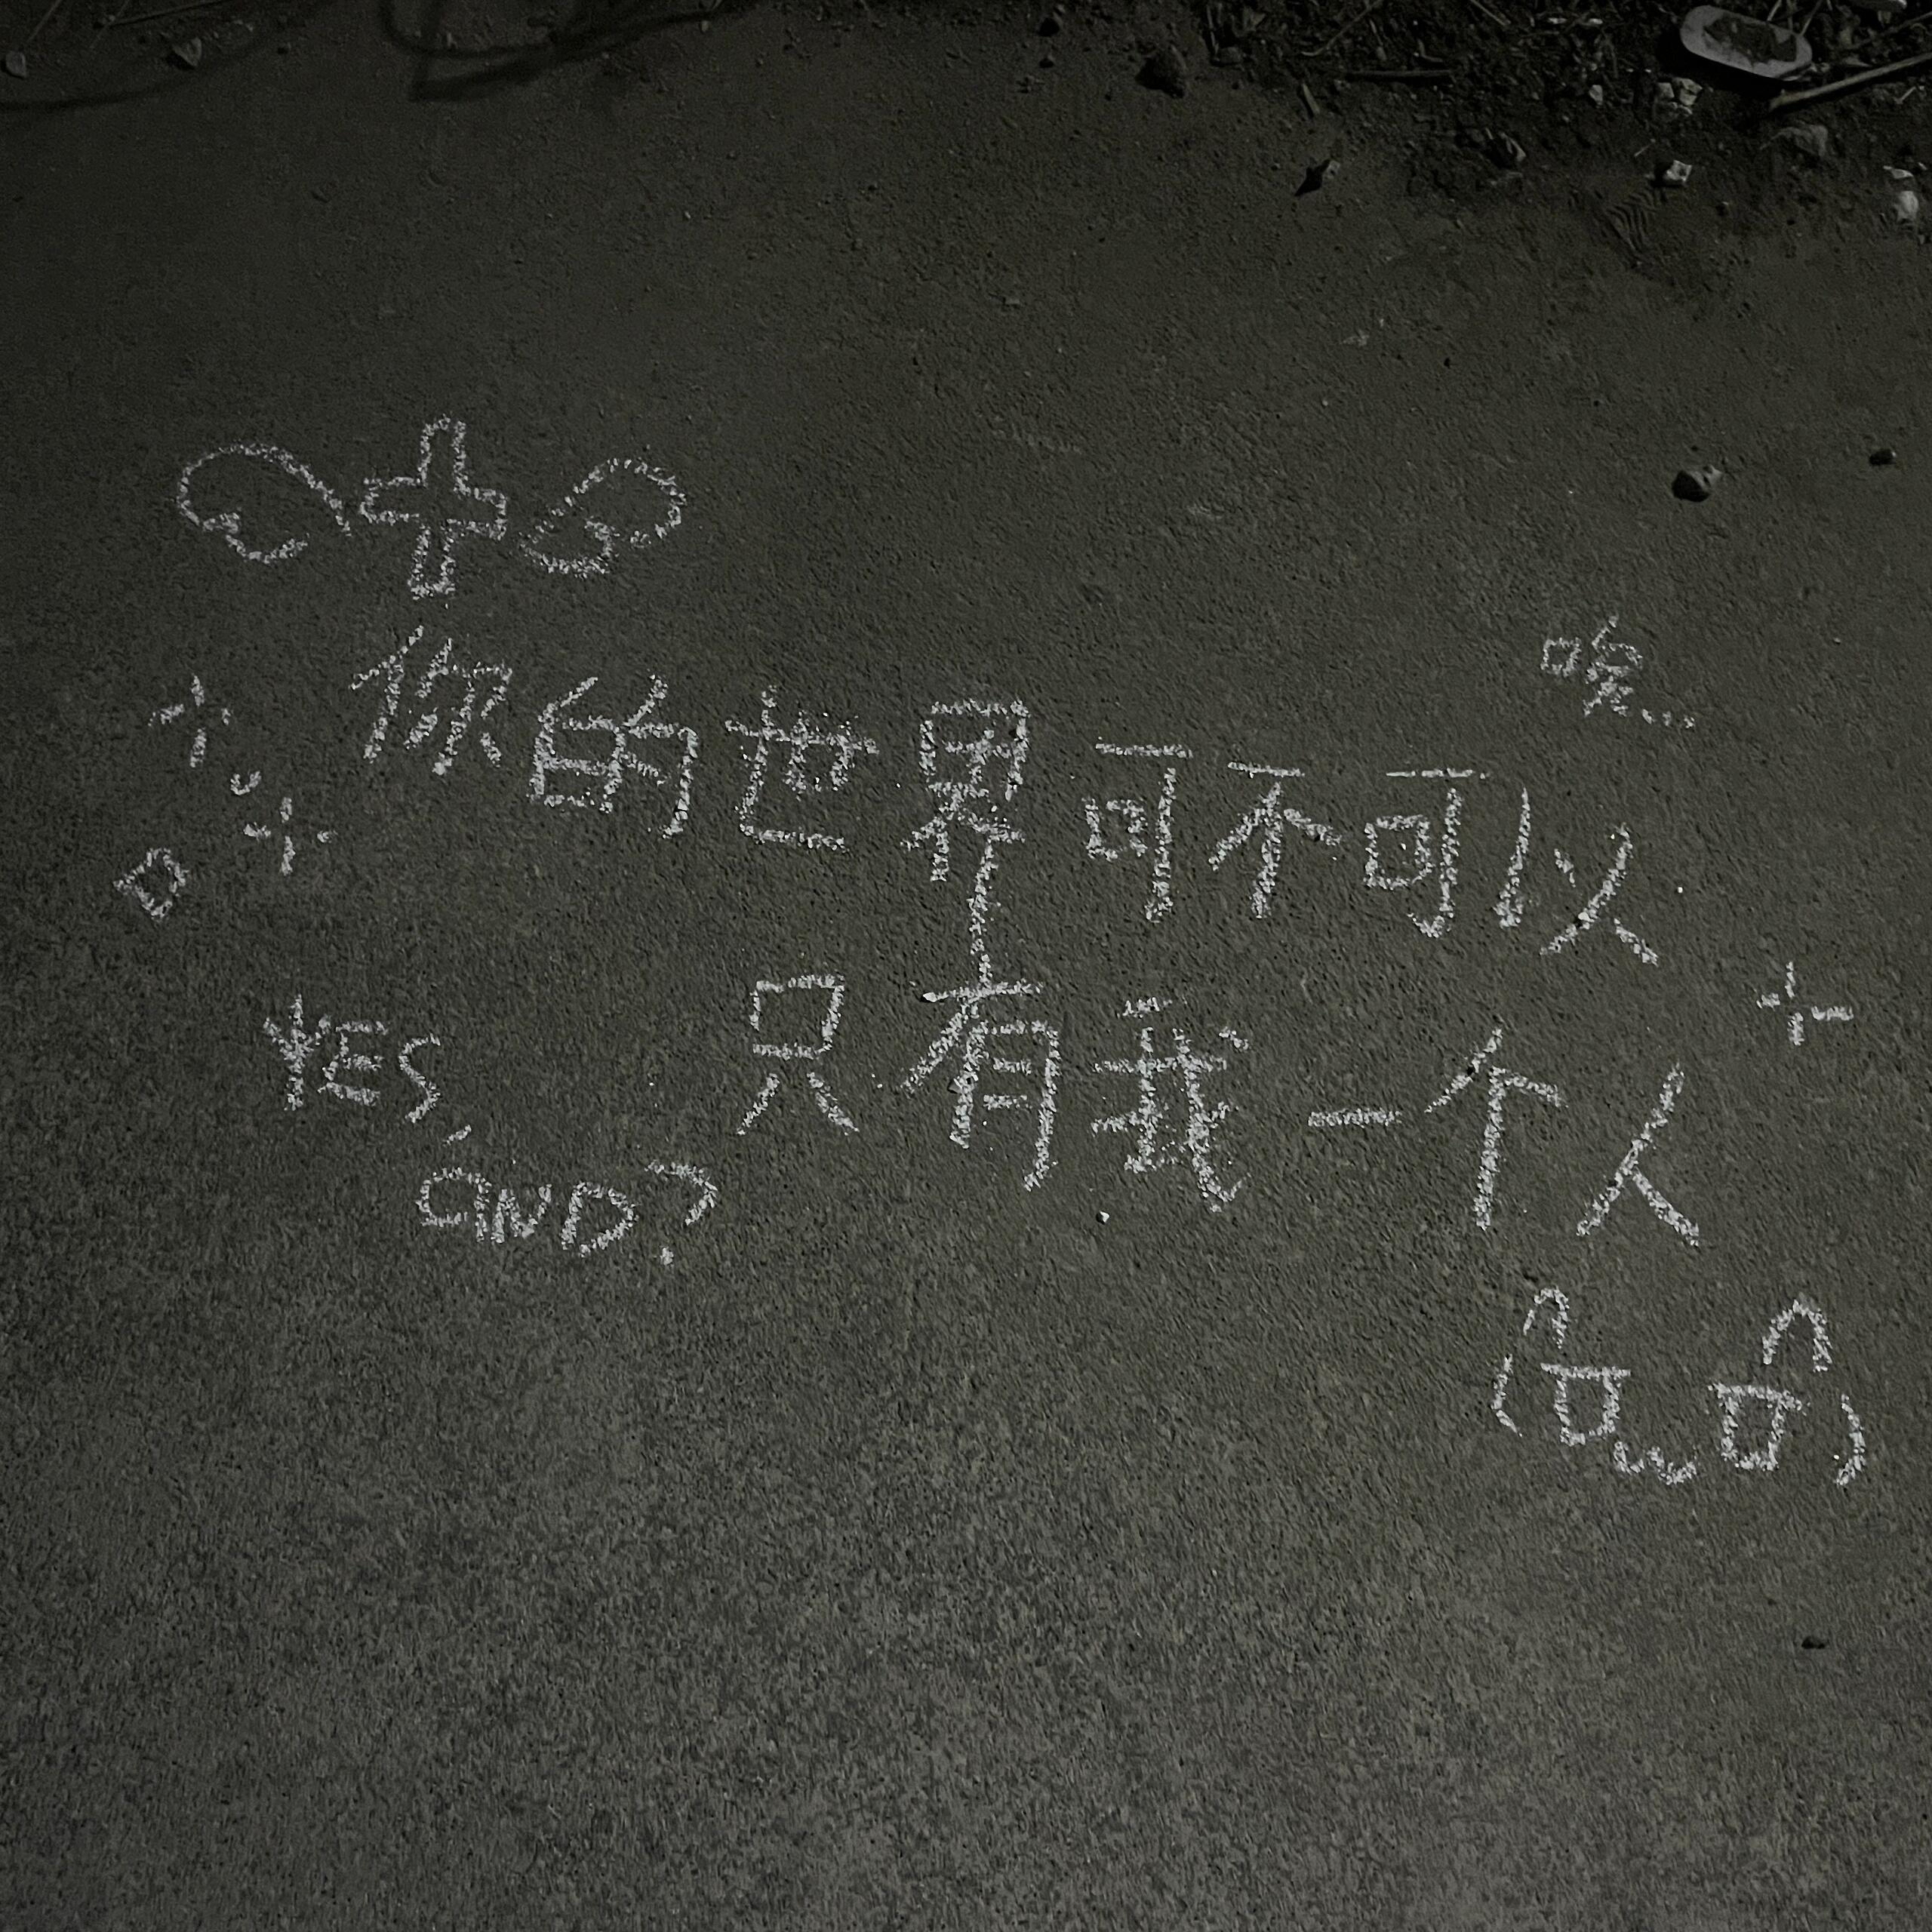 唉...
你的世界可不可以
只有我一个人
YES,
AND?